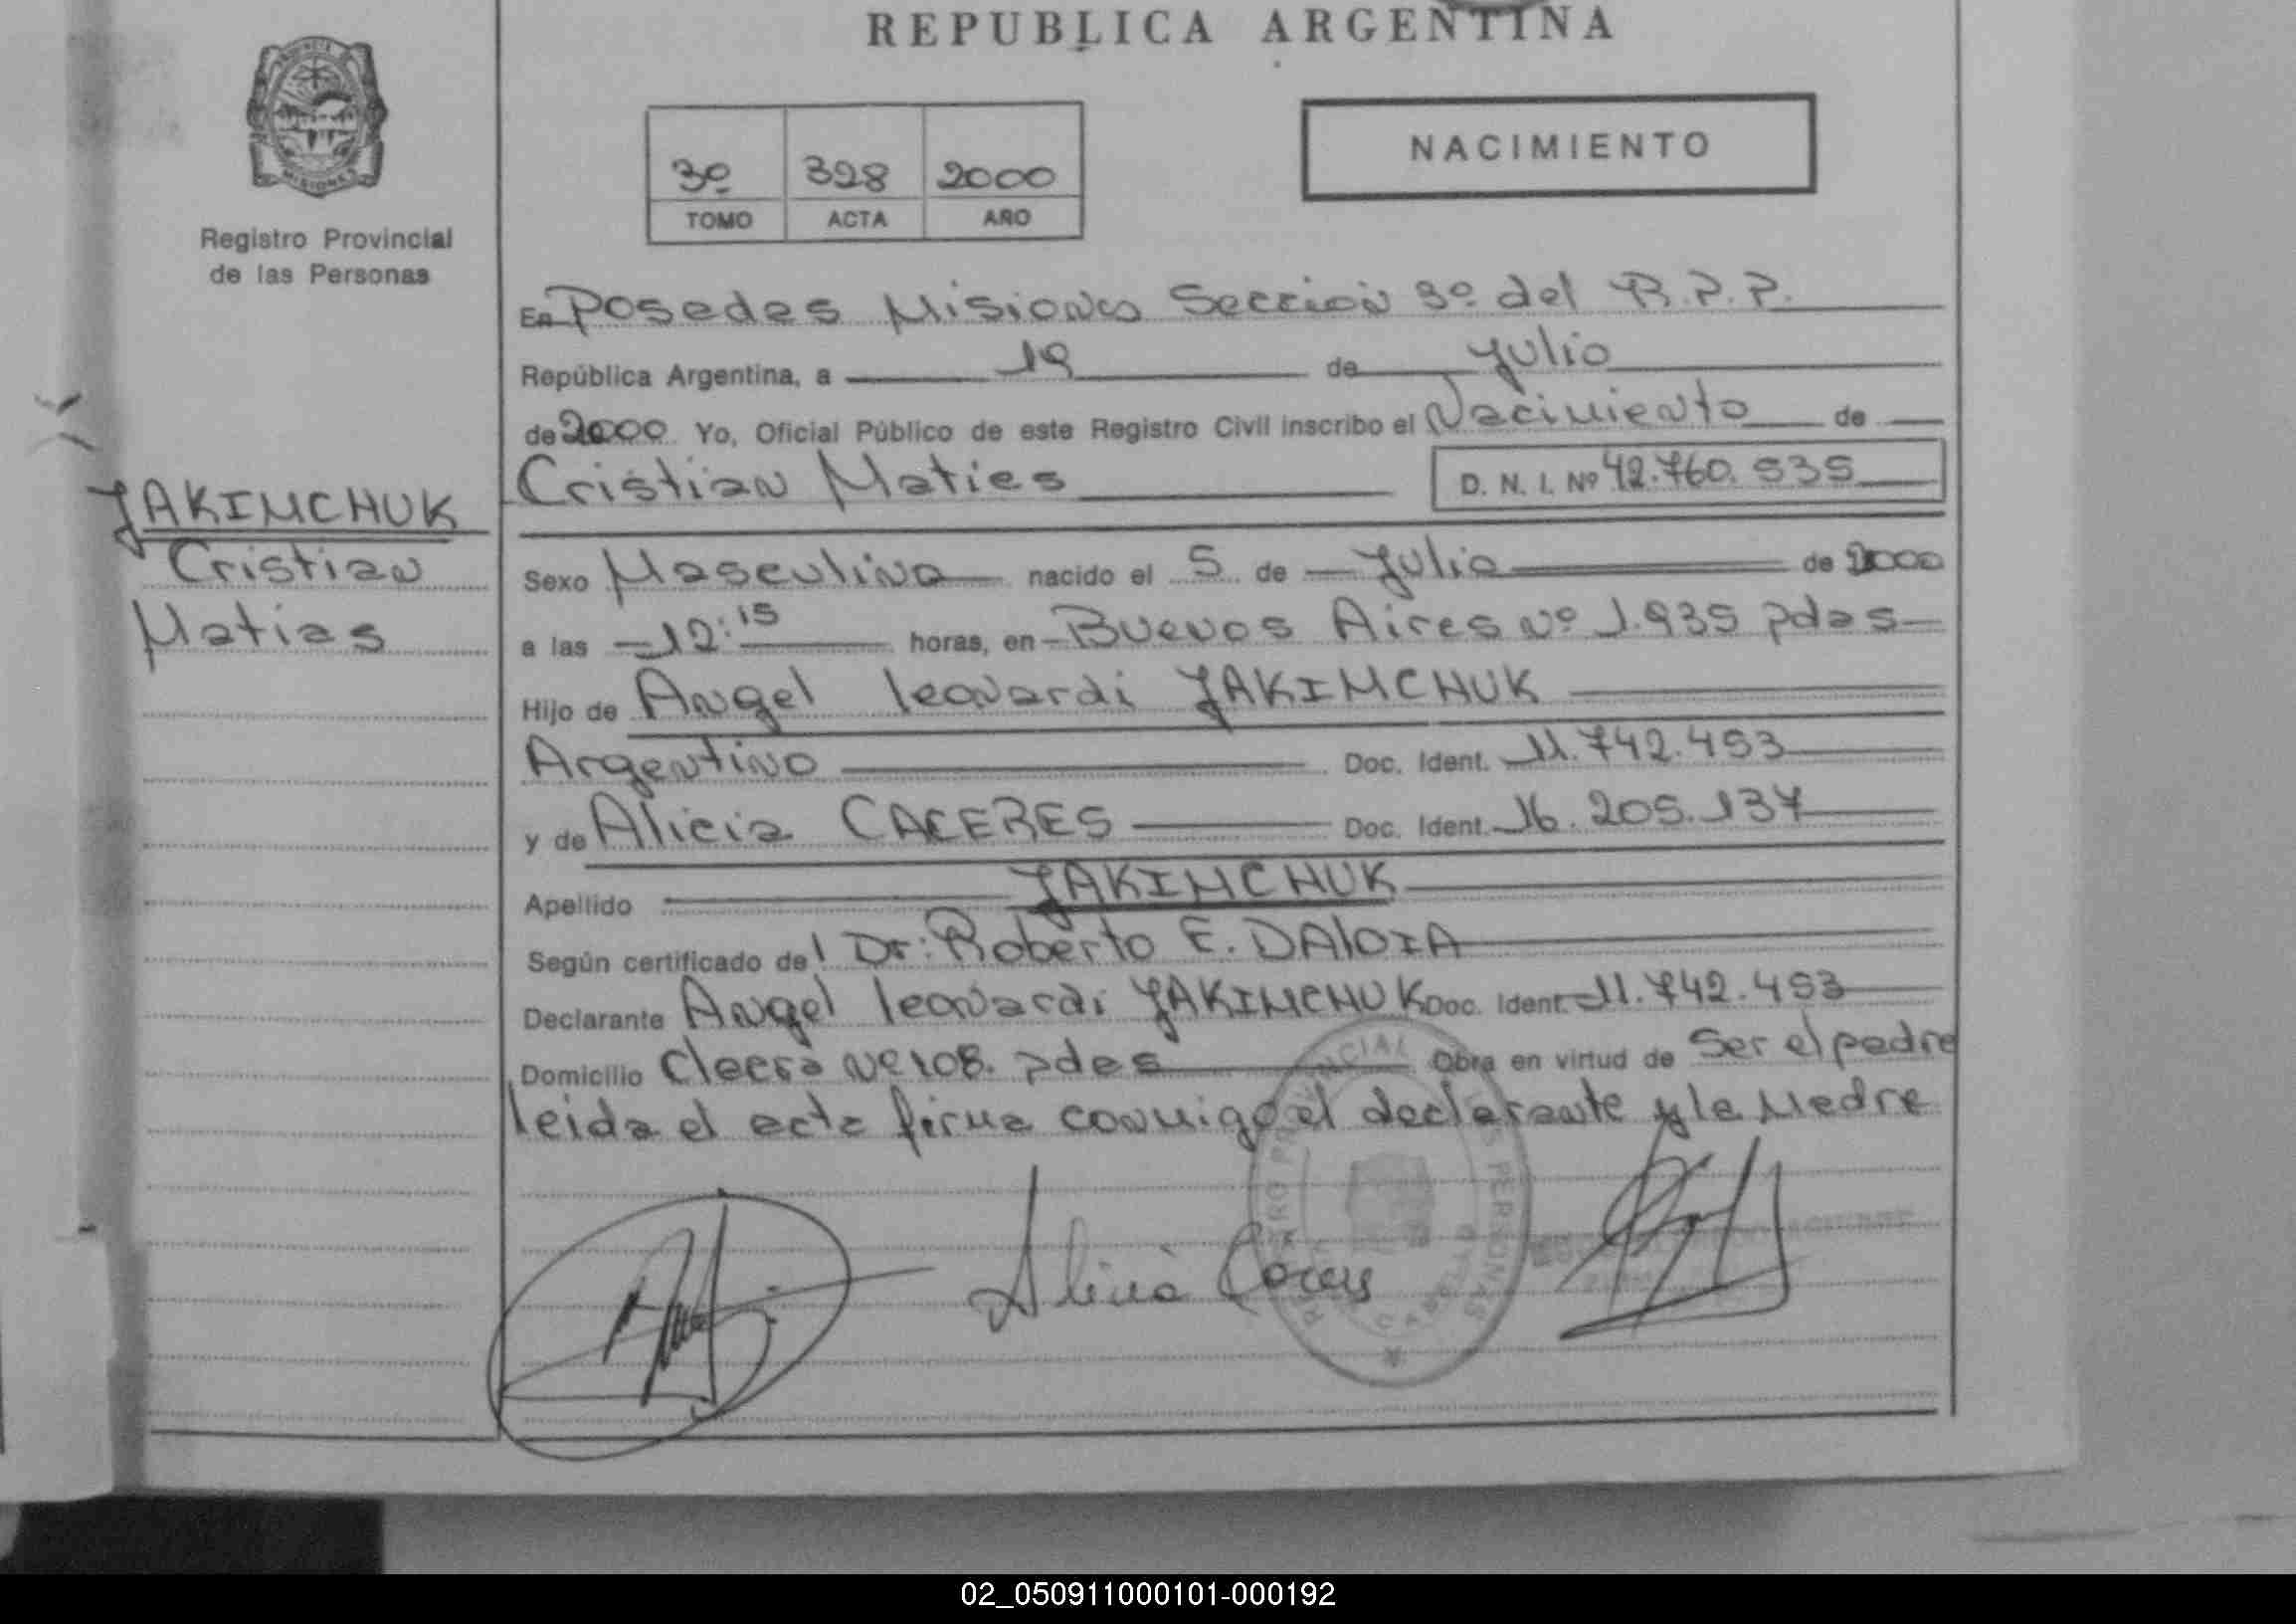 REPUBLICA ARGENTINA
MISIONES
Registro Provincial
de las Personas
3º 328 2000
TOMO ACTA AÑO
NACIMIENTO
En Posadas Misiones Sección 3º del R.P.P.
República Argentina, a 19 de Julio
de 2000 Yo, Oficial Público de este Registro Civil inscribo el Nacimiento de
Cristian Matias D. N. I. Nº 42.760.535
JAKIMCHUK
Cristian
Matias
Sexo Masculino nacido el 5 de Julio de 2000
a las 12:15 horas, en Buenos Aires Nº 1.935 pdas
Hijo de Angel leonardi JAKIMCHUK
Argentino Doc. Ident. 11.742.453
y de Alicia CACERES Doc. Ident. 16.205.137
Apellido JAKIMCHUK
Según certificado del Dr: Roberto E. DAlOIA
Declarante Angel leonardi JAKIMCHUK Doc. Ident. 11.742.453
Domicilio Nº 108. pdas Obra en virtud de Ser el padre
leida el acta firma conmigo el declarante y la Madre
Alicia
02_050911000101-000192